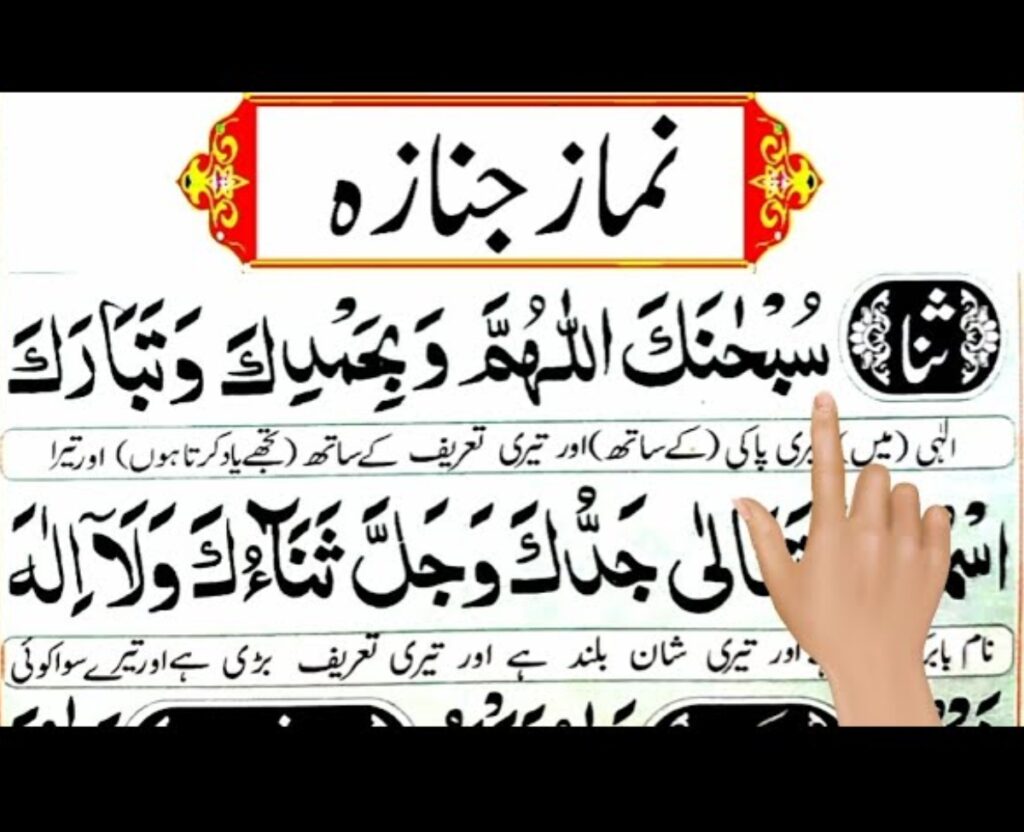 نماز جنازہ
ثنا
سُبْحٰنَكَ اللّٰهُمَّ وَبِحَمْدِكَ وَتَبَارَكَ
الٰہی (میں) پاکی (کے ساتھ) اور تیری تعریف کے ساتھ (تجھے یاد کرتا ہوں) اور تیرا
جَدُّكَ وَجَلَّ ثَنَآءُكَ وَلَآ اِلٰهَ
نام اور تیری شان بلند ہے اور تیری تعریف بڑی ہے اور تیرے سوا کوئی